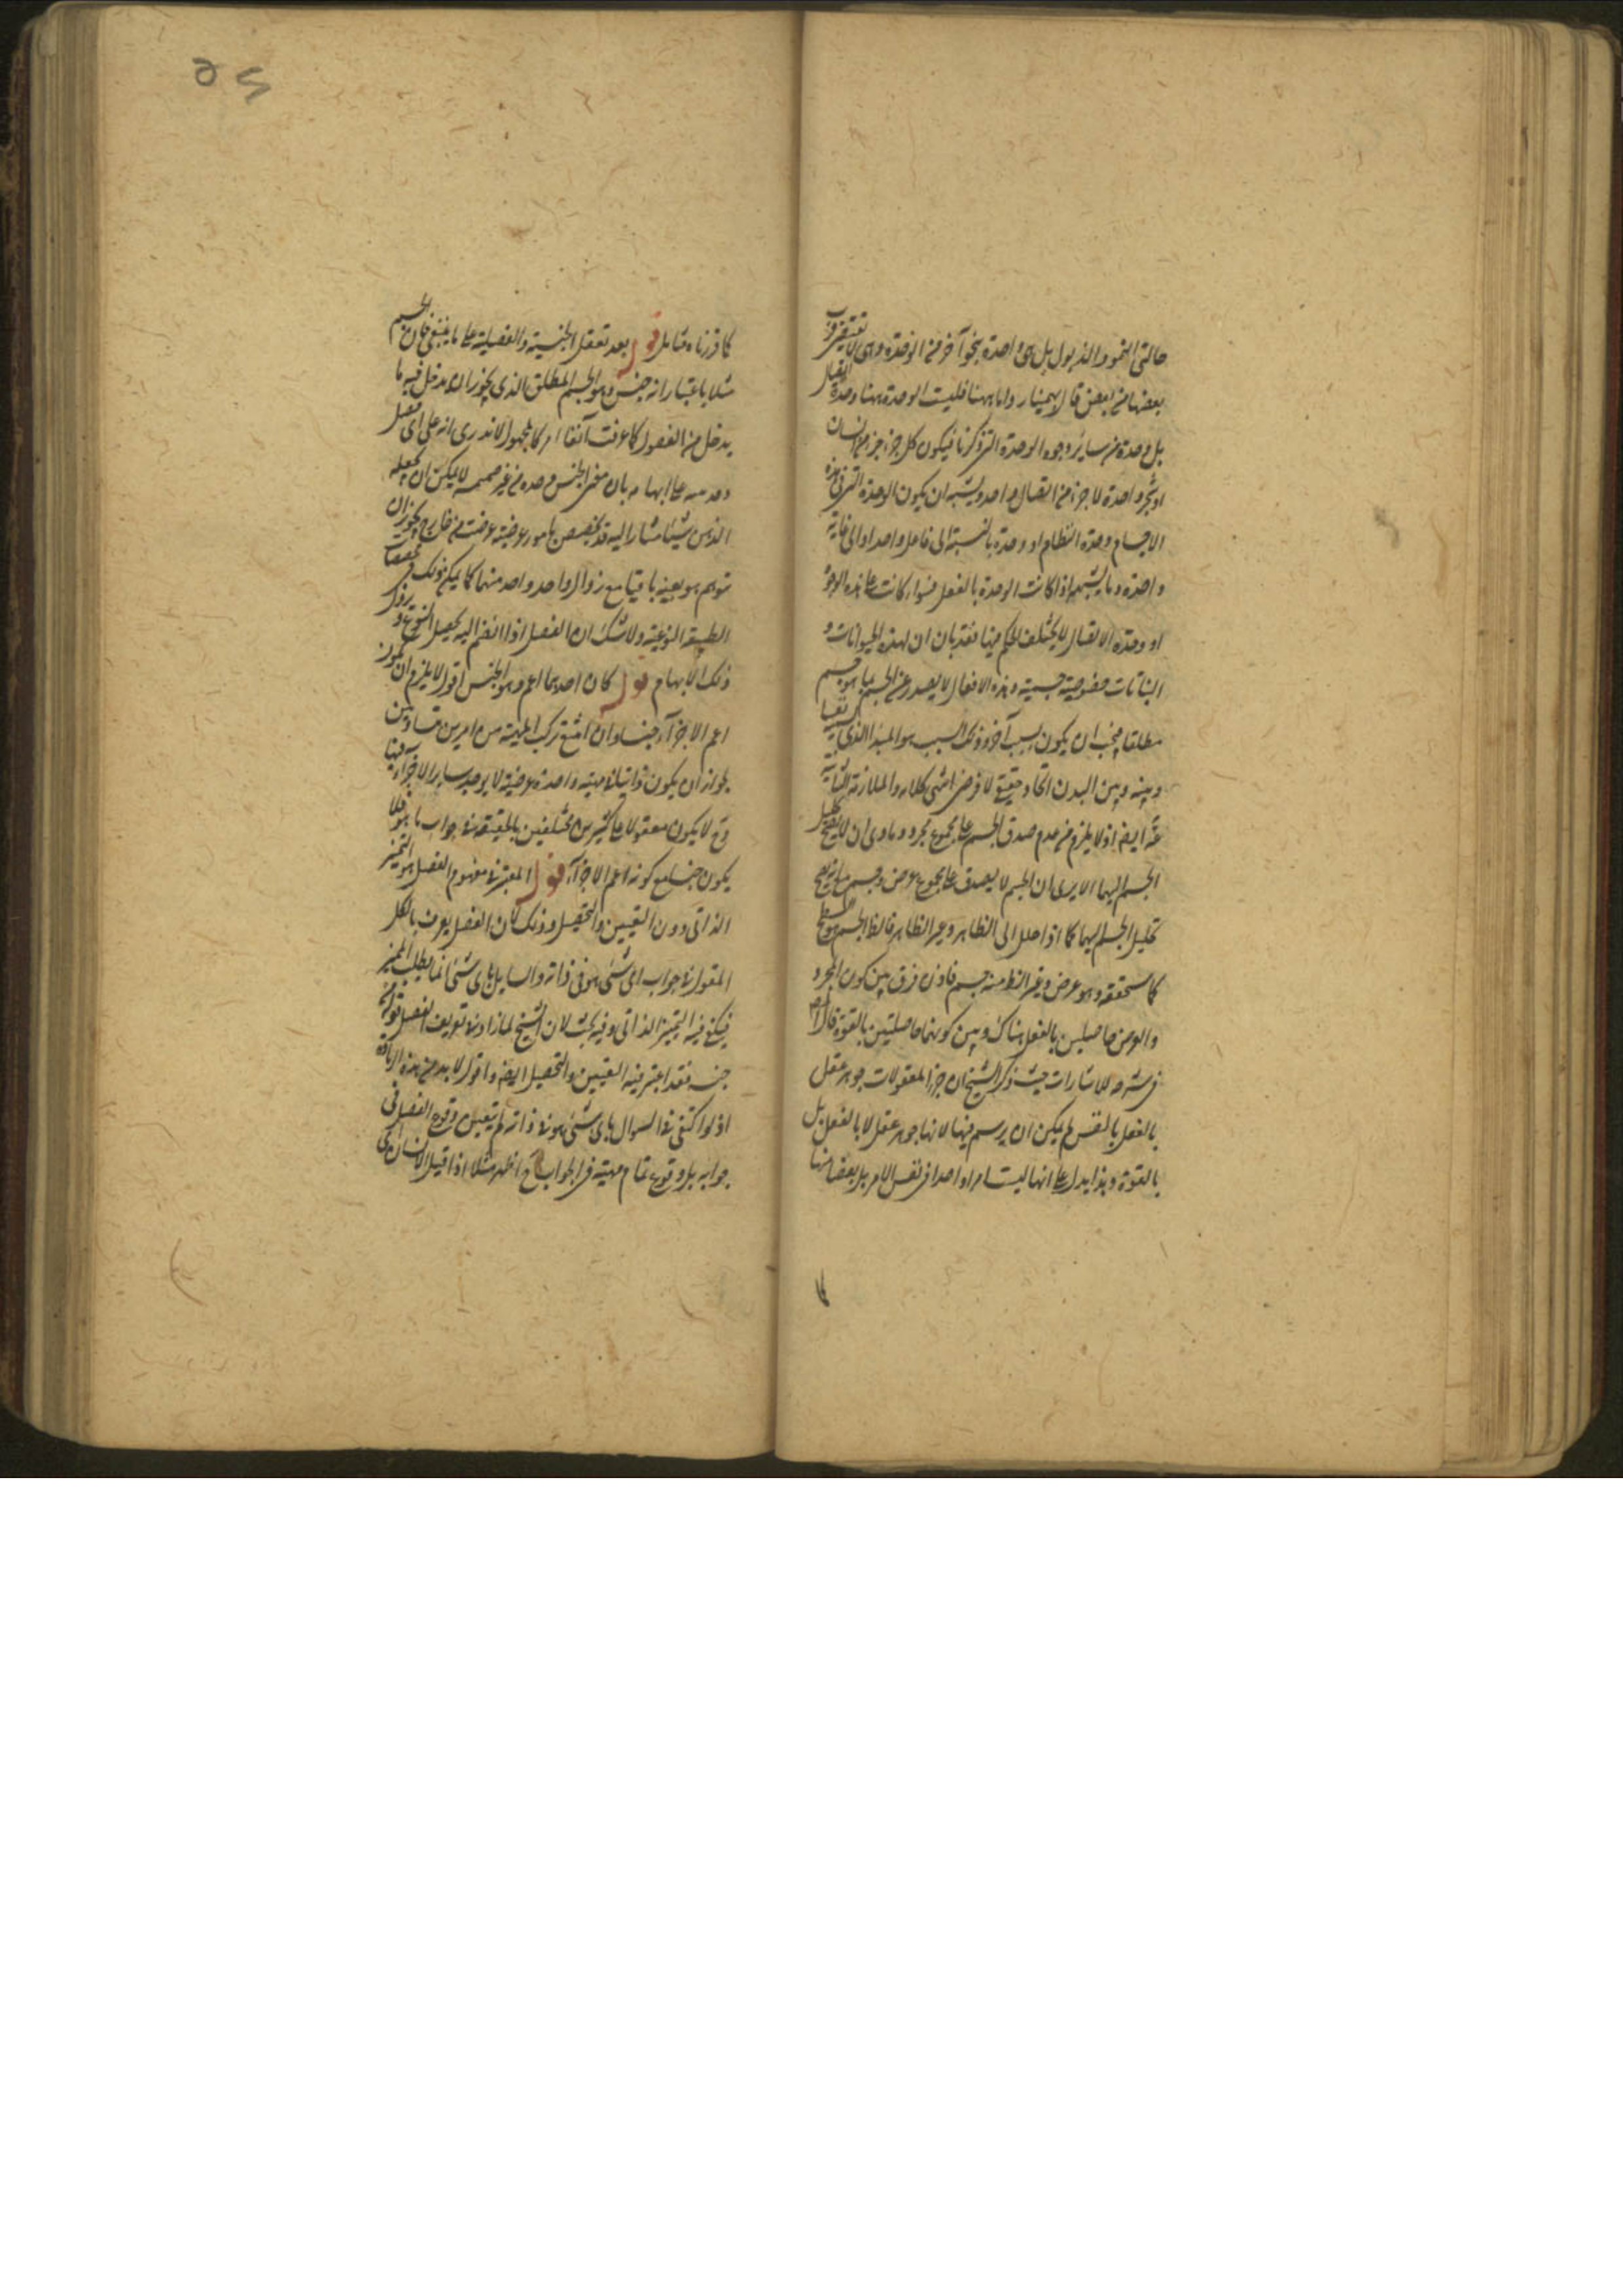 حالتى النمو والذبول بل هى واحدة بنحو آخر من الوحدة وهى لا تقتضى قرب
بعضها من بعض قال بهمنيار واما ههنا فليست الوحدة ههنا وحدة اتصال
بل وحدة من ساير وجوه الوحدة التى ذكرنا فيكون كل جزء جزء من انسان
او شجرة واحدة لا جزء من اتصال واحد ويشبه ان يكون الوحدة التى فى هذه
الاجسام وحدة النظام او وحدة بالنسبة الى فاعل واحد او الى غاية
واحدة وما يشبهها واذا كانت الوحدة بالفعل فسواء كانت على هذه الوجوه
او وحدة الاتصال لا يختلف الحكم فيها فقد بان ان لهذه الحيوانات و
النباتات خصوصية جسمية وهذه الافعال لا يصدر عن الجسم بما هو جسم
مطلقا فيجب ان يكون بسبب آخر وذلك السبب هو المبدا الذى
وبينه وبين البدن اتحاد حقيقى لا فرضى انتهى كلامه والملازمة الثانية
ايضا اذ لا يلزم من عدم صدق الجسم على مجموع مجرد ومادى ان لا يصح تحليل
الجسم اليهما الا يرى ان الجسم لا يصدق على مجموع عرض وجسم مع انه يصح
تحليل الجسم اليهما كما اذا حلل الى الظاهر وغير الظاهر فالظاهر الجسم هو السطح
كما ستحققه وهو عرض وغير الظاهر منه جسم فاذن فرق بين كون المجرد
والعرض حاصلين بالفعل هناك وبين كونهما حاصلتين بالقوة قال
فى شرحه للاشارات حيث ذكر الشيخ ان جزء المعقولات جوهر عقل
بالفعل بالنفس لم يكن ان يرسم فيها لانها جوهر عقل لا بالفعل بل
بالقوة وهذا يدل على انها ليست امرا واحدا فى نفس الامر بل بعضا منها
كما قررناه فتامل قوله بعد تعقل الجنسية والفصلية على ما ينبغى فان من الجسم
مثلا باعتبار انه جنس وهو الجسم المطلق الذى يجوز ان لا يدخل فيه ما
يدخل من الفصول كما عرفت آنفا امر كالمجهول لا ندرى انه على اى
ابهامه بان معنى الجنس وحده من غير ضميمه لا يمكن ان يجعله
الذهن شيئا مشارا اليه قد يخصص بامور عرضية عرضت من خارج يجوز ان
يتوهم هو بعينه باقيا مع زوال واحد واحد منها كما يمكن ذلك فى
الطبيعة النوعية ولا شك ان الفصل اذا انضم اليه يحصل النوع ويزول
ذلك الابهام قوله كان احدهما اعم وهو الجنس اقول لا يلزم ان يكون
اعم الاجزاء جنسا وان امتنع تركب المهية من امرين متساويين
لجواز ان يكون ذاتيا لمهية واحدة عرضية لا يوجد ساير الاجزاء فيها
وح لا يكون مقولا على كثيرين مختلفين بالحقيقة فى جواب ما هو فلا
يكون جنسا مع كونه اعم الاجزاء قوله المعتبر فى مفهوم الفصل هو التميز
الذاتى دون التعيين والتحصيل وذلك لان الفصل يعرف بالكلى
المقول فى جواب اى شئ هو فى ذاته والسايل باى شئ انما يطلب المميز
فيكفى فيه التميز الذاتى وفيه بحث لان الشيخ لما زاد فى تعريف الفصل قوله من
جنسه فقد اعتبر فيه التعيين والتحصيل ايضا واقول لا بد من هذه الزيادة
اذ لو اكتفى فى السوال باى شئ هو فى ذاته لم يتعين وقوع الفصل فى
جوابه بل وقوع تمام مهيته فى الجواب ح اظهر مثلا اذا قيل الانسان اى